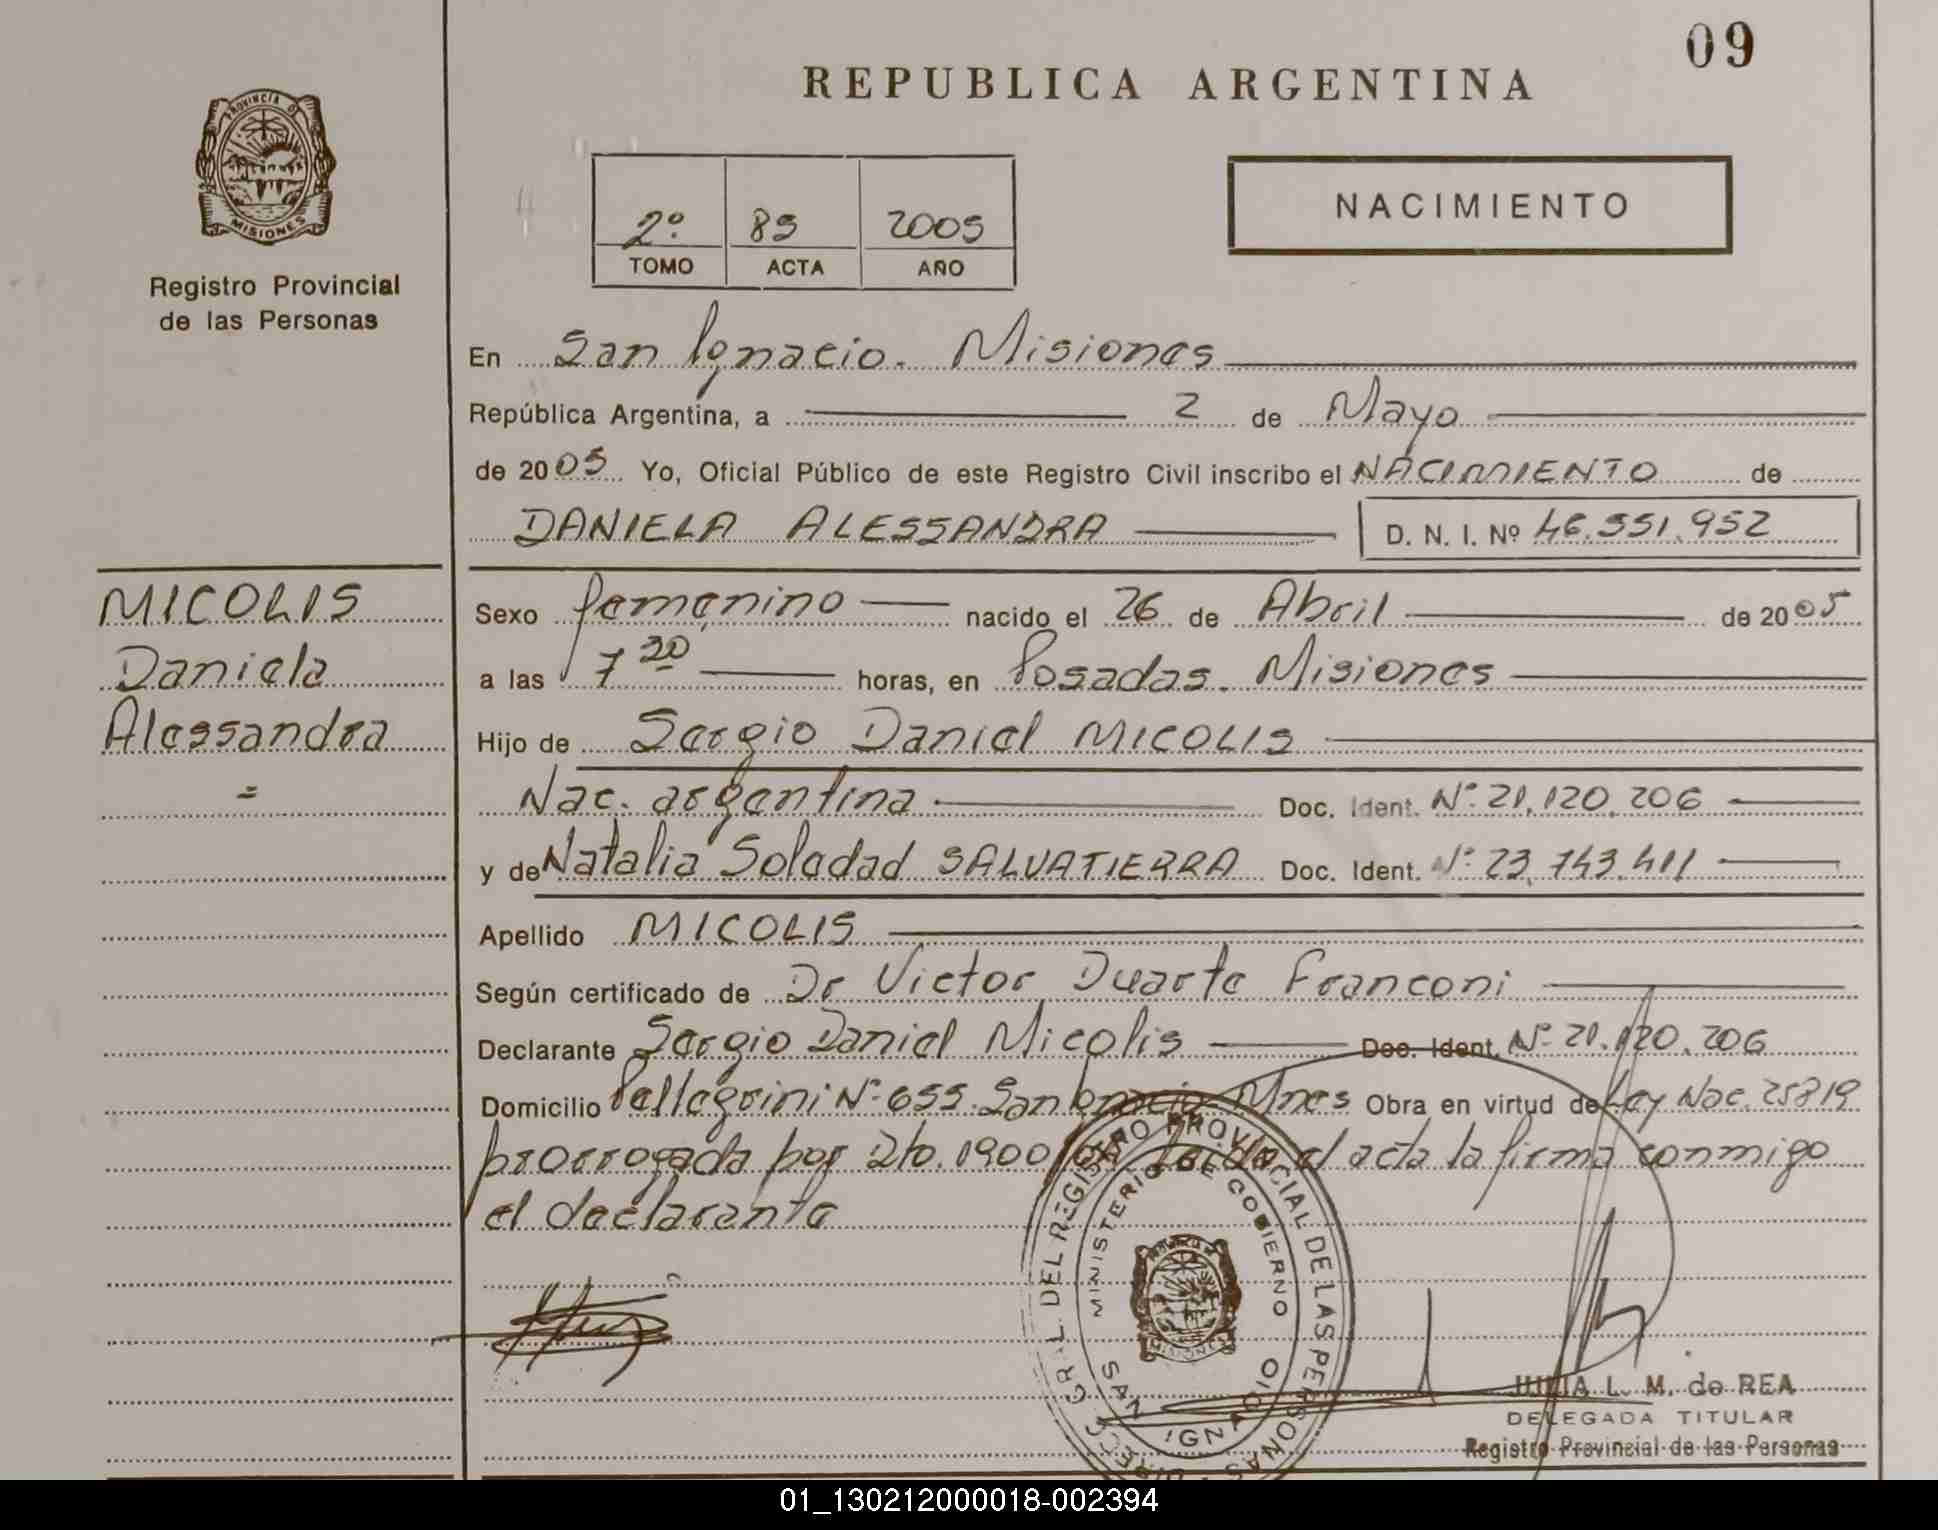 09
REPUBLICA ARGENTINA
PROVINCIA DE
MISIONES
Registro Provincial
de las Personas
2º 85 2005
TOMO ACTA AÑO
NACIMIENTO
En San Ignacio. Misiones
República Argentina, a 2 de Mayo
de 2005 Yo, Oficial Público de este Registro Civil inscribo el NACIMIENTO de
DANIELA ALESSANDRA D. N. I. Nº 46.551.952
MICOLIS
Daniela
Alessandra
=
Sexo femenino nacido el 26 de Abril de 2005
a las 7 20 horas, en Posadas. Misiones
Hijo de Sergio Daniel MICOLIS
Nac. argentina Doc. Ident. Nº 21.120.206
y de Natalia Soledad SALVATIERRA Doc. Ident. Nº 23.743.411
Apellido MICOLIS
Según certificado de Dr Victor Duarte Franconi
Declarante Sergio Daniel Micolis Doc. Ident. Nº 21.120.206
Domicilio Pellegrini Nº 655. San Ignacio Mnes Obra en virtud de Ley Nac. 25819
prorrogada por Dto. 1900 Leída el acta la firma conmigo
el declarante
DIRECC. GRAL. DEL REGISTRO PROVINCIAL DE LAS PERSONAS
MINISTERIO DE GOBIERNO
SAN IGNACIO
MISIONES
JULIA L. M. de REA
DELEGADA TITULAR
Registro Provincial de las Personas
01_130212000018-002394